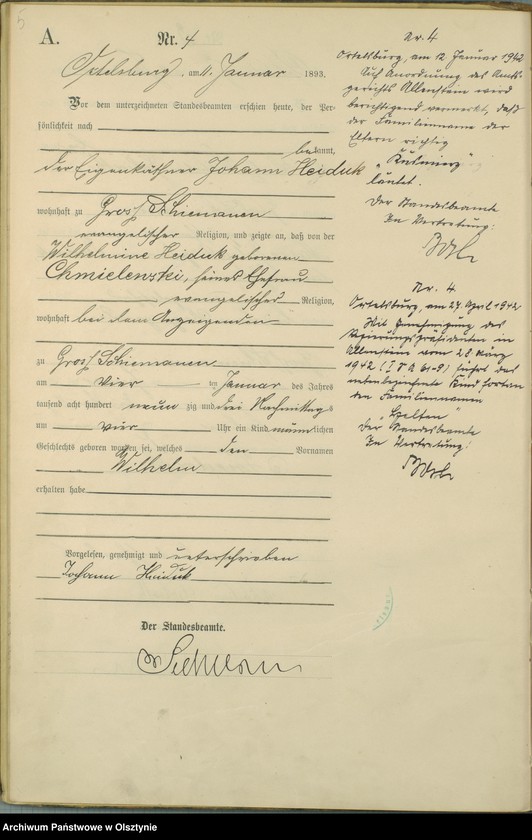 5
A.
Nr. 4
Ortelsburg, am 11. Januar 1893.
Vor dem unterzeichneten Standesbeamten erschien heute, der Per-
sönlichkeit nach
bekannt,
der Eigenkäthner Johann Heiduk
wohnhaft zu Gross Schiemanen
evangelischer Religion, und zeigte an, daß von der
Wilhelmine Heiduk geborenen
Chmielenski, seines Ehefrau
evangelischer Religion,
wohnhaft bei dem Anzeigenden
zu Gross Schiemanen
am vier ten Januar des Jahres
tausend acht hundert neun zig und drei Nachmittags
um vier Uhr ein Kind männlichen
Geschlechts geboren worden sei, welches den Vornamen
Wilhelm
erhalten habe
Vorgelesen, genehmigt und unterschrieben
Johann Heiduk
Der Standesbeamte.
Nr. 4
Ortelsburg, am 12. Januar 1942
Auf Anordnung des Amts-
gerichts Allenstein wird
berichtigend vermerkt, daß
der Familienname der
Eltern richtig
lautet.
Der Standesbeamte
In Vertretung:
Nr. 4.
Ortelsburg, am 27. April 1942
Mit Genehmigung des
Regierungspräsidenten in
Allenstein vom 28. März
1942 führt das
nebenbezeichnete Kind fortan
den Familiennamen
Der Standesbeamte
In Vertretung:
Archiwum Państwowe w Olsztynie